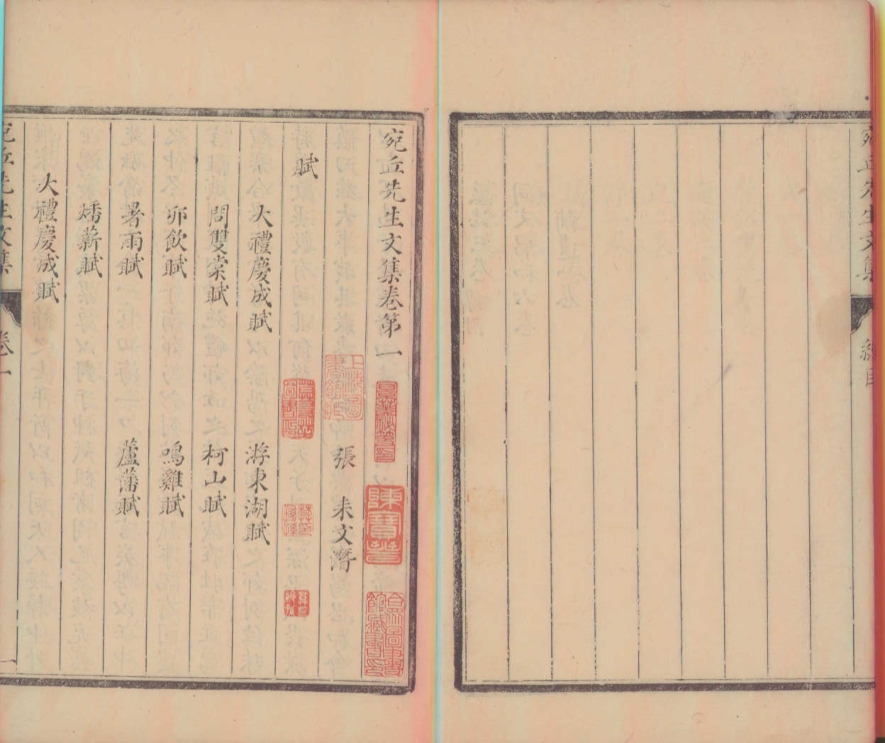 宛丘先生文集
總目
宛丘先生文集卷第一
張 耒文潛
賦
大禮慶成賦 游東湖賦
問雙棠賦 柯山賦
卯飲賦 鳴雞賦
暑雨賦 蘆藩賦
燔薪賦
大禮慶成賦
宛丘先生文集
卷一
一